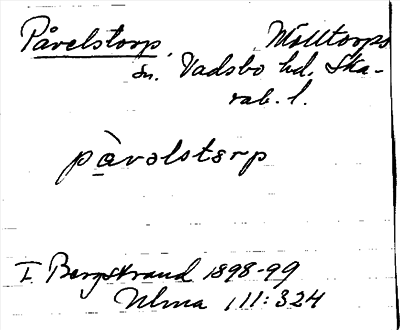 Påvelstorp. Mölltorps
sn. Vadsbo hd. Ska-
rab. l.
pàvəlstərp
I. Bergstrand 1898-99
Ulma 111:324